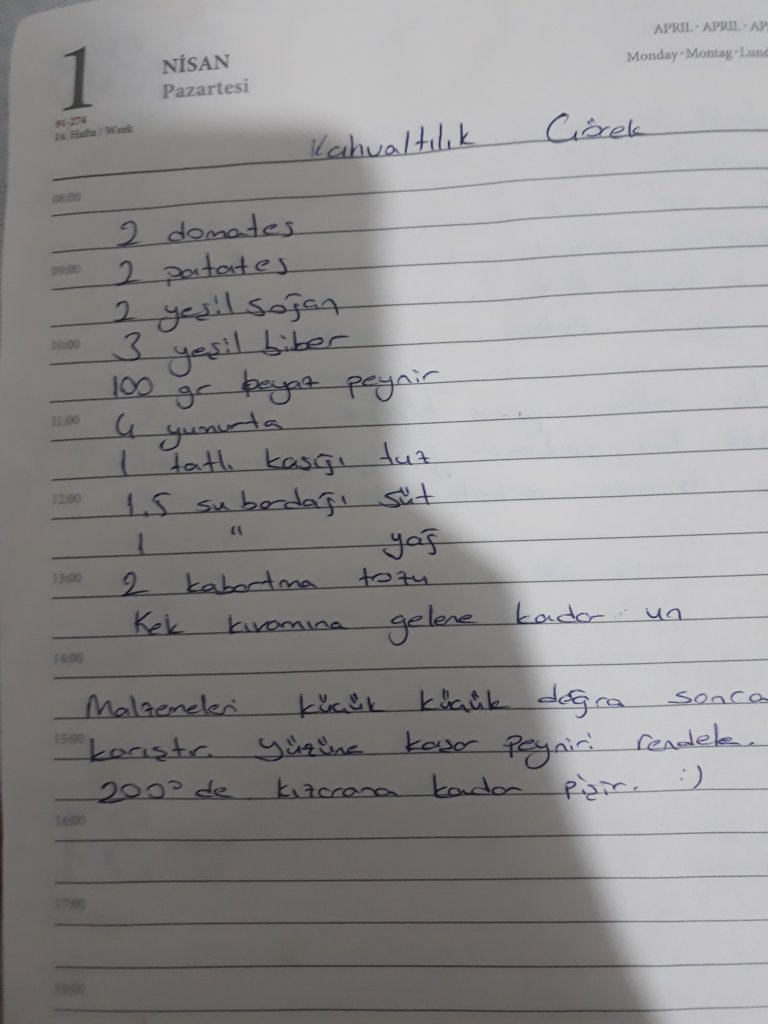 1
NİSAN
Pazartesi
91-274
14. Hafta / Week
APRIL · APRIL · AP
Monday · Montag · Lund
Kahvaltılık Çörek
08:00
2 domates
09:00
2 patates
2 yeşil soğan
10:00
3 yeşil biber
100 gr beyaz peynir
11:00
4 yumurta
1 tatlı kaşığı tuz
12:00
1,5 su bardağı süt
1 " yağ
13:00
2 kabartma tozu
Kek kıvamına gelene kadar un
14:00
Malzemeleri küçük küçük doğra sonra
15:00
karıştır. Yüzüne kaşar peyniri rendele.
200° de kızarana kadar pişir. :)
16:00
17:00
18:00